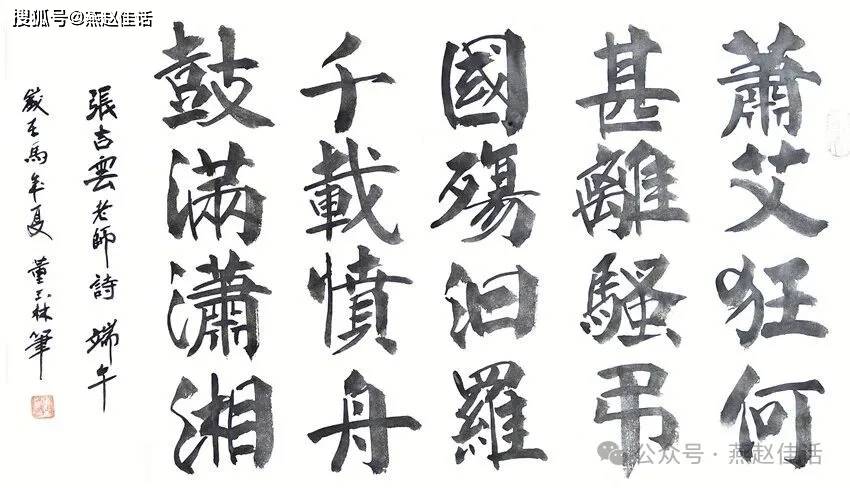 搜狐号@燕赵佳话
蕭艾狂何
甚離騷弔
國殤汨羅
千載憤舟
鼓滿瀟湘
張吉雲老師詩 端午
歲在馬年夏 董玉林筆
公众号 · 燕赵佳话